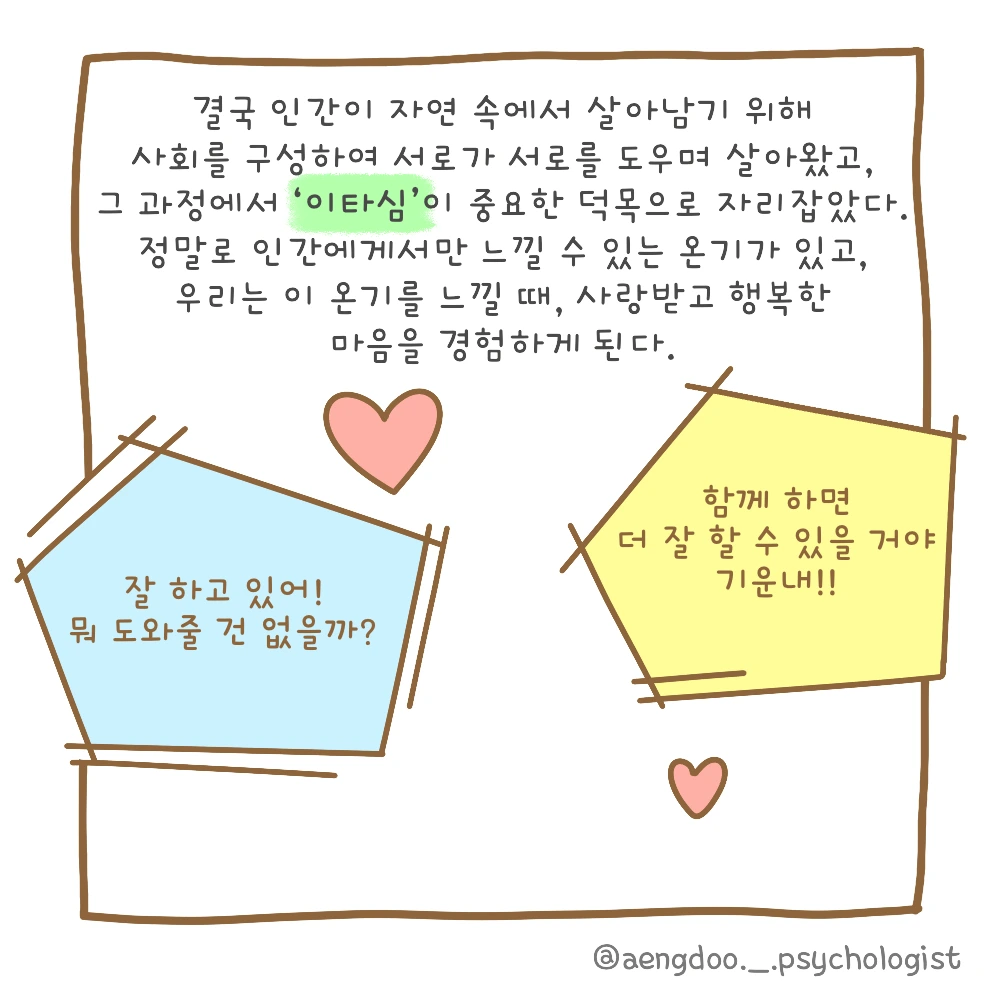 결국 인간이 자연 속에서 살아남기 위해
사회를 구성하여 서로가 서로를 도우며 살아왔고,
그 과정에서 ‘이타심’이 중요한 덕목으로 자리잡았다.
정말로 인간에게서만 느낄 수 있는 온기가 있고,
우리는 이 온기를 느낄 때, 사랑받고 행복한
마음을 경험하게 된다.
잘 하고 있어!
뭐 도와줄 건 없을까?
함께 하면
더 잘 할 수 있을 거야
기운내!!
@aengdoo._.psychologist